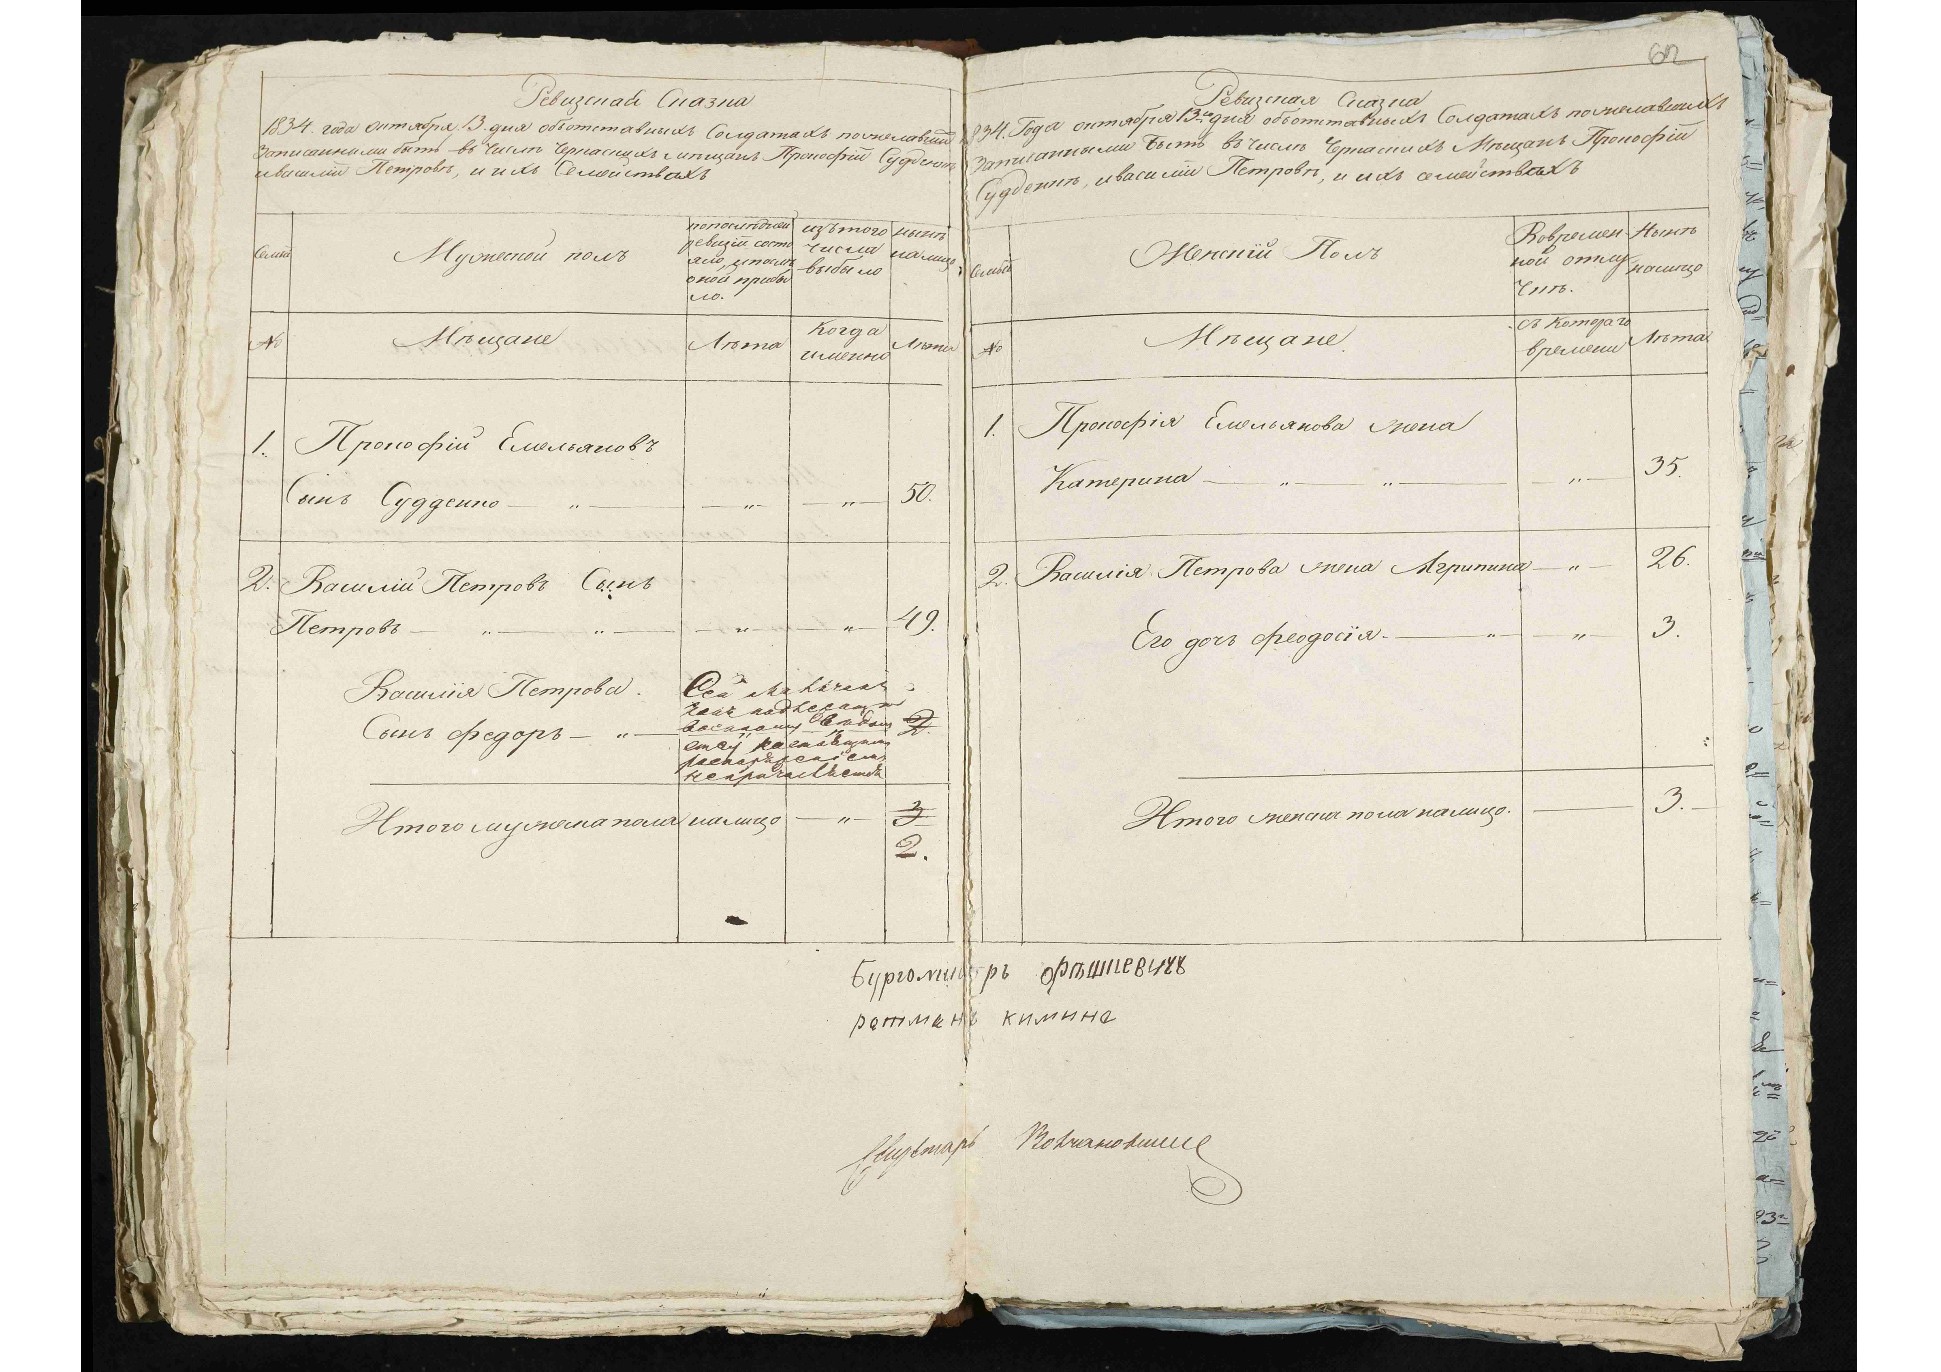 Ревизскай Сказка
1834. года октября 13. дня оботставныхъ Солдатахъ пожелавшихъ
записанными быть въ числѣ Черкаскихъ мѣщанъ Прокофій Судденкѣ
ивасилій Петровѣ, и ихъ Семействахъ
Семьи
Мужеской полъ
попослѣдней ревизіи состояло, и послѣ оной прибыло.
изътого числа выбыло
нынѣ налицо
№
Мѣщане
Лѣта
Когда именно
Лѣта
1. Прокофій Емельяновъ
Сынъ Судденко — „ — — „ — — „ — 50.
2. Василій Петровъ Сынъ
Петровъ — „ — „ — — „ — — „ — 49.
Василія Петрова
Сынъ федоръ — „ — 2.
Сей мальчикъ
какъ подлежащій
военному Вѣдом
ству
распоряженіемъ
непричисляется
Итого мужеска пола налицо — „ — 3
2.
62
Ревизская Сказка
1834. Года октября 13го дня оботставныхъ Солдатахъ пожелавшихъ
записанными быть въчислѣ Черкаскихъ Мѣщанъ Прокофій
Судденкѣ, ивасилій Петровѣ, и ихъ семействахъ
Семьи
Женскій Полъ
Вовремен
ной отлу
чкѣ.
Нынѣ
налицо
№
Мѣщане.
съ котораго
времени
Лѣта
1. Прокофія Емельянова жена
Катерина — „ — „ — — „ — 35.
2. Василія Петрова жена Агрипина — „ — 26.
Его дочь феодосія — „ — — „ — 3.
Итого женска пола налицо. — 3. —
Бургомистръ
ратманъ кимина
Секретарь